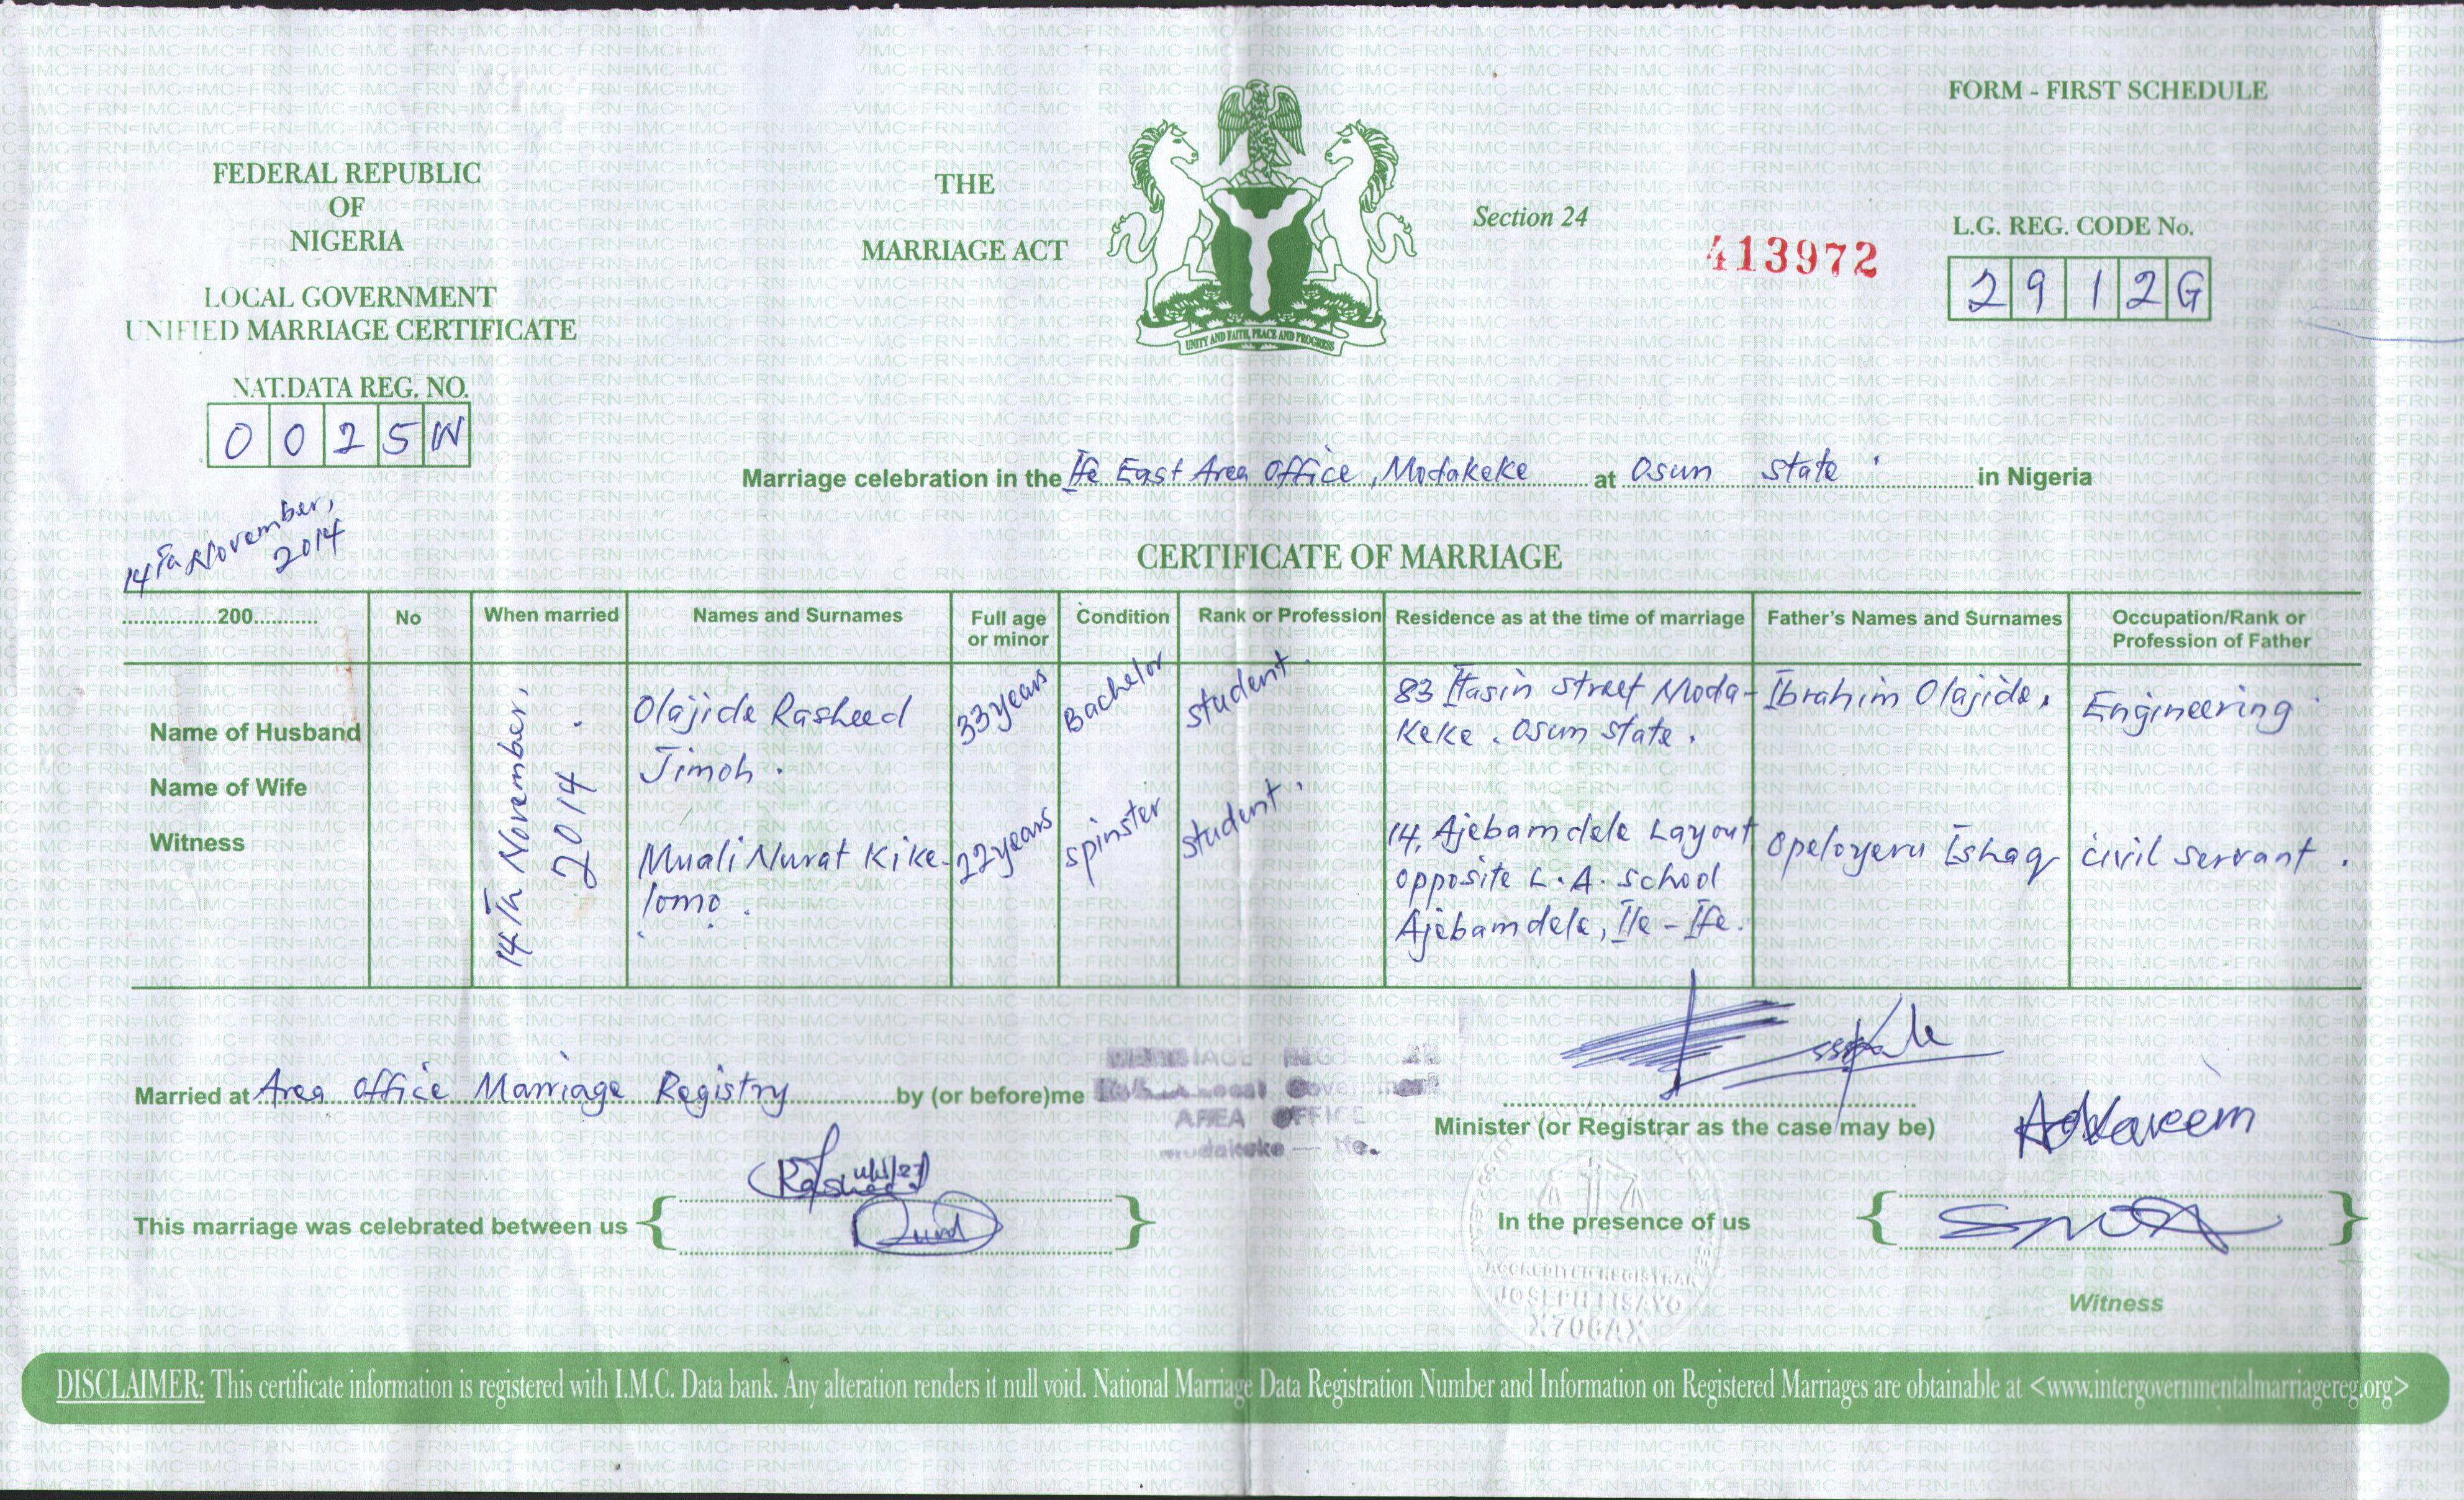 FORM - FIRST SCHEDULE
FEDERAL REPUBLIC
OF
NIGERIA
LOCAL GOVERNMENT
UNIFIED MARRIAGE CERTIFICATE
NAT.DATA REG. NO.
0 0 2 5 W
THE
MARRIAGE ACT
UNITY AND FAITH, PEACE AND PROGRESS
Section 24
413972
L.G. REG. CODE No.
2 9 1 2 G
Marriage celebration in the Ife East Area Office, Modakeke at Osun State in Nigeria
14th November,
2014
CERTIFICATE OF MARRIAGE
200 No When married Names and Surnames Full age or minor Condition Rank or Profession Residence as at the time of marriage Father's Names and Surnames Occupation/Rank or Profession of Father
Name of Husband
Name of Wife
Witness
14th November,
2014
Olajide Rasheed
Jimoh.
33years
Bachelor
student.
83 Itasin Street Moda-
keke. Osun State.
Ibrahim Olajide.
Engineering
Muali Nurat Kike-
lomo.
22years
spinster
student.
14, Ajebamdele Layout
opposite L.A. School
Ajebamdele, Ile-Ife.
Opeloyeru Ishaq
civil servant.
Married at Area Office Marriage Registry by (or before)me
Local Government
AREA OFFICE
Modakeke - Ife.
Minister (or Registrar as the case may be)
This marriage was celebrated between us
In the presence of us
ACCREDITED REGISTRAR
JOSEPH FISAYO
X706AX
Witness
DISCLAIMER: This certificate information is registered with I.M.C. Data bank. Any alteration renders it null void. National Marriage Data Registration Number and Information on Registered Marriages are obtainable at <www.intergovernmentalmarriagereg.org>